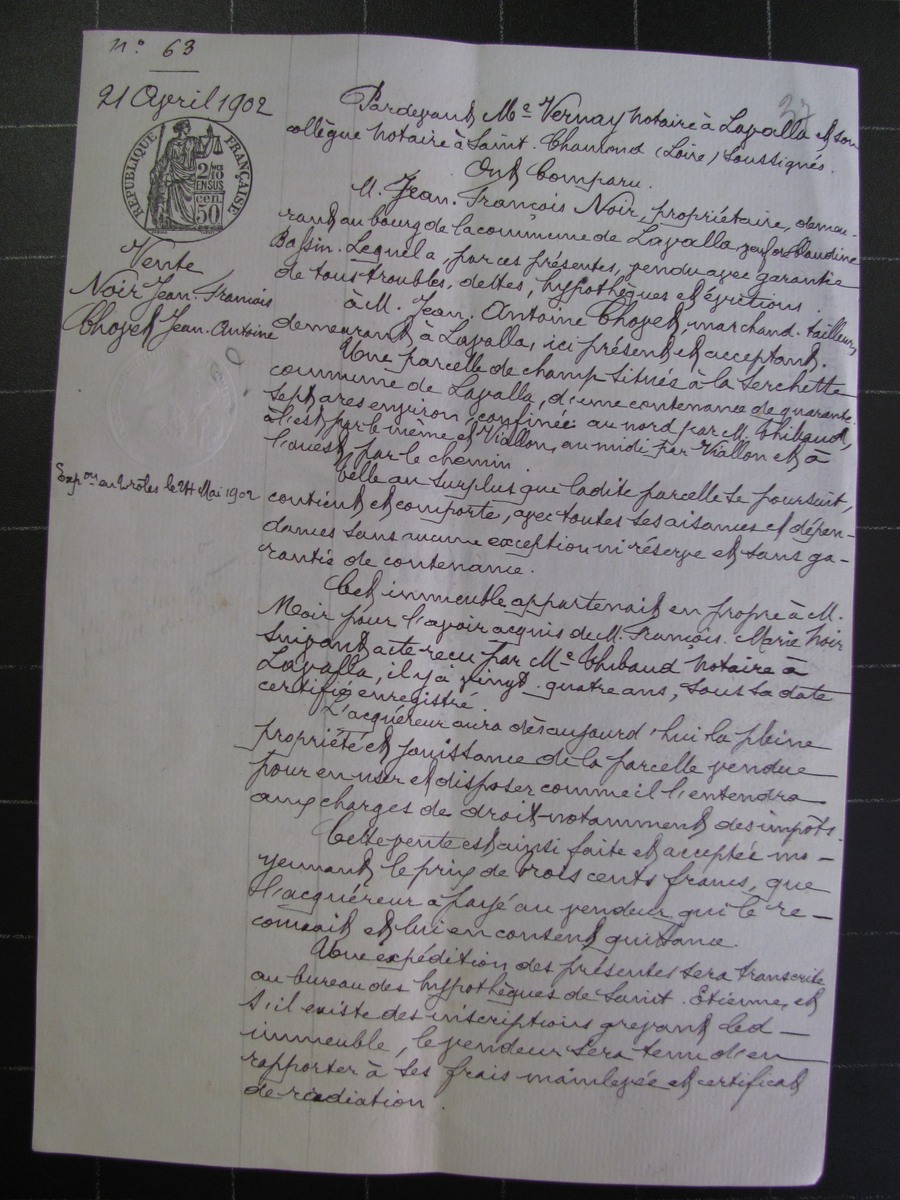 n° 63
21 Avril 1902
37
RÉPUBLIQUE FRANÇAISE
2/10 EN SUS
50 cen.
Vente
Noir Jean-François
Choyet Jean-Antoine
Expon au rôles le 24 Mai 1902
Pardevant Me Vernay notaire à Lavalla et son
collègue notaire à Saint-Chamond (Loire) soussignés.
Ont Comparu.
M. Jean-François Noir, propriétaire, demeu-
rant au bourg de la commune de Lavalla, Claudine
Bassin. Lequel a, par ces présentes, vendu avec garantie
de tous troubles, dettes, hypothèques et évictions.
à M. Jean-Antoine Choyet, marchand-tailleur,
demeurant à Lavalla, ici présent et acceptant.
Une parcelle de champ située à la Serchette
commune de Lavalla, d'une contenance de quarante
sept ares environ, confinée: au nord par M. Thibaud,
à l'est par le même et Viallon, au midi par Viallon et à
l'ouest, par le chemin.
Telle au surplus que ladite parcelle se poursuit,
contient et comporte, avec toutes ses aisances et dépen-
dances sans aucune exception ni réserve et sans ga-
rantie de contenance.
Cet immeuble appartenait en propre à M.
Noir pour l'avoir acquis de M. François-Marie Noir
suivant acte reçu par Me Thibaud, notaire à
Lavalla, il y a vingt-quatre ans, sous sa date
certifié enregistré.
L'acquéreur aura dès aujourd'hui la pleine
propriété et jouissance de la parcelle vendue
pour en user et disposer comme il l'entendra
aux charges de droit notamment des impôts.
Cette vente est ainsi faite et acceptée mo-
yennant le prix de trois cents francs, que
l'acquéreur a payé au vendeur qui le re-
connait et lui en consent quittance.
Une expédition des présentes sera transcrite
au bureau des hypothèques de Saint-Etienne, et
s'il existe des inscriptions grevant led-
immeuble, le vendeur sera tenu d'en
rapporter à ses frais mainlevée et certificat
de radiation.